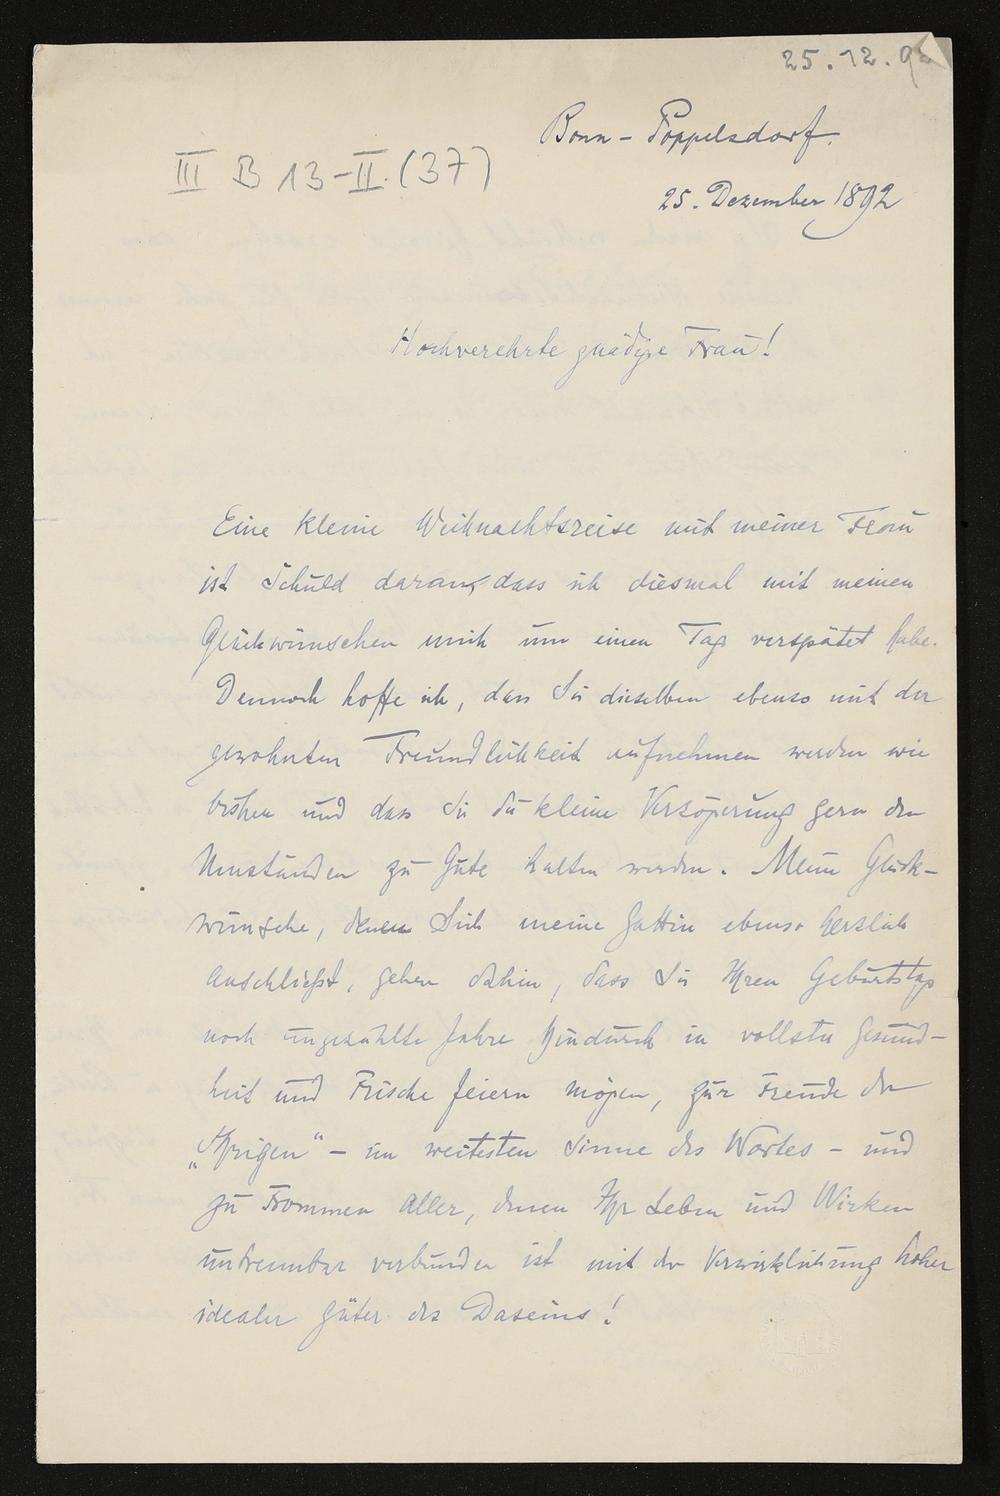 25.12.92
Bonn-Poppelsdorf.
III B 13-II.(37)
25. Dezember 1892
Hochverehrte gnädige Frau!
Eine kleine Weihnachtsreise mit meiner Frau
ist Schuld daran, dass ich diesmal mit meinen
Glückwünschen mich um einen Tag verspätet habe.
Dennoch hoffe ich, dass Sie dieselben ebenso mit der
gewohnten Freundlichkeit aufnehmen werden wie
bisher und dass Sie die kleine Verzögerung gern den
Umständen zu Gute halten werden. Meine Glück-
wünsche, denen Sich meine Gattin ebenso herzlich
anschließt, gehen dahin, dass Sie Ihren Geburtstag
noch ungezählte Jahre hindurch in vollster Gesund-
heit und Frische feiern mögen, zur Freude der
„Ihrigen" - im weitesten Sinne des Wortes - und
zu Frommen aller, denen Ihr Leben und Wirken
untrennbar verbunden ist mit der Verwirklichung hoher
idealer Güter des Daseins!